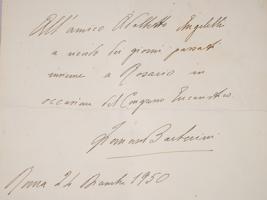 All'amico Adalberto Angelilli
a ricordo dei giorni passati
insieme a Rosario in
occasione del Congresso Eucaristico.
Giovanni Barberini
Roma 24 Dicembre 1950